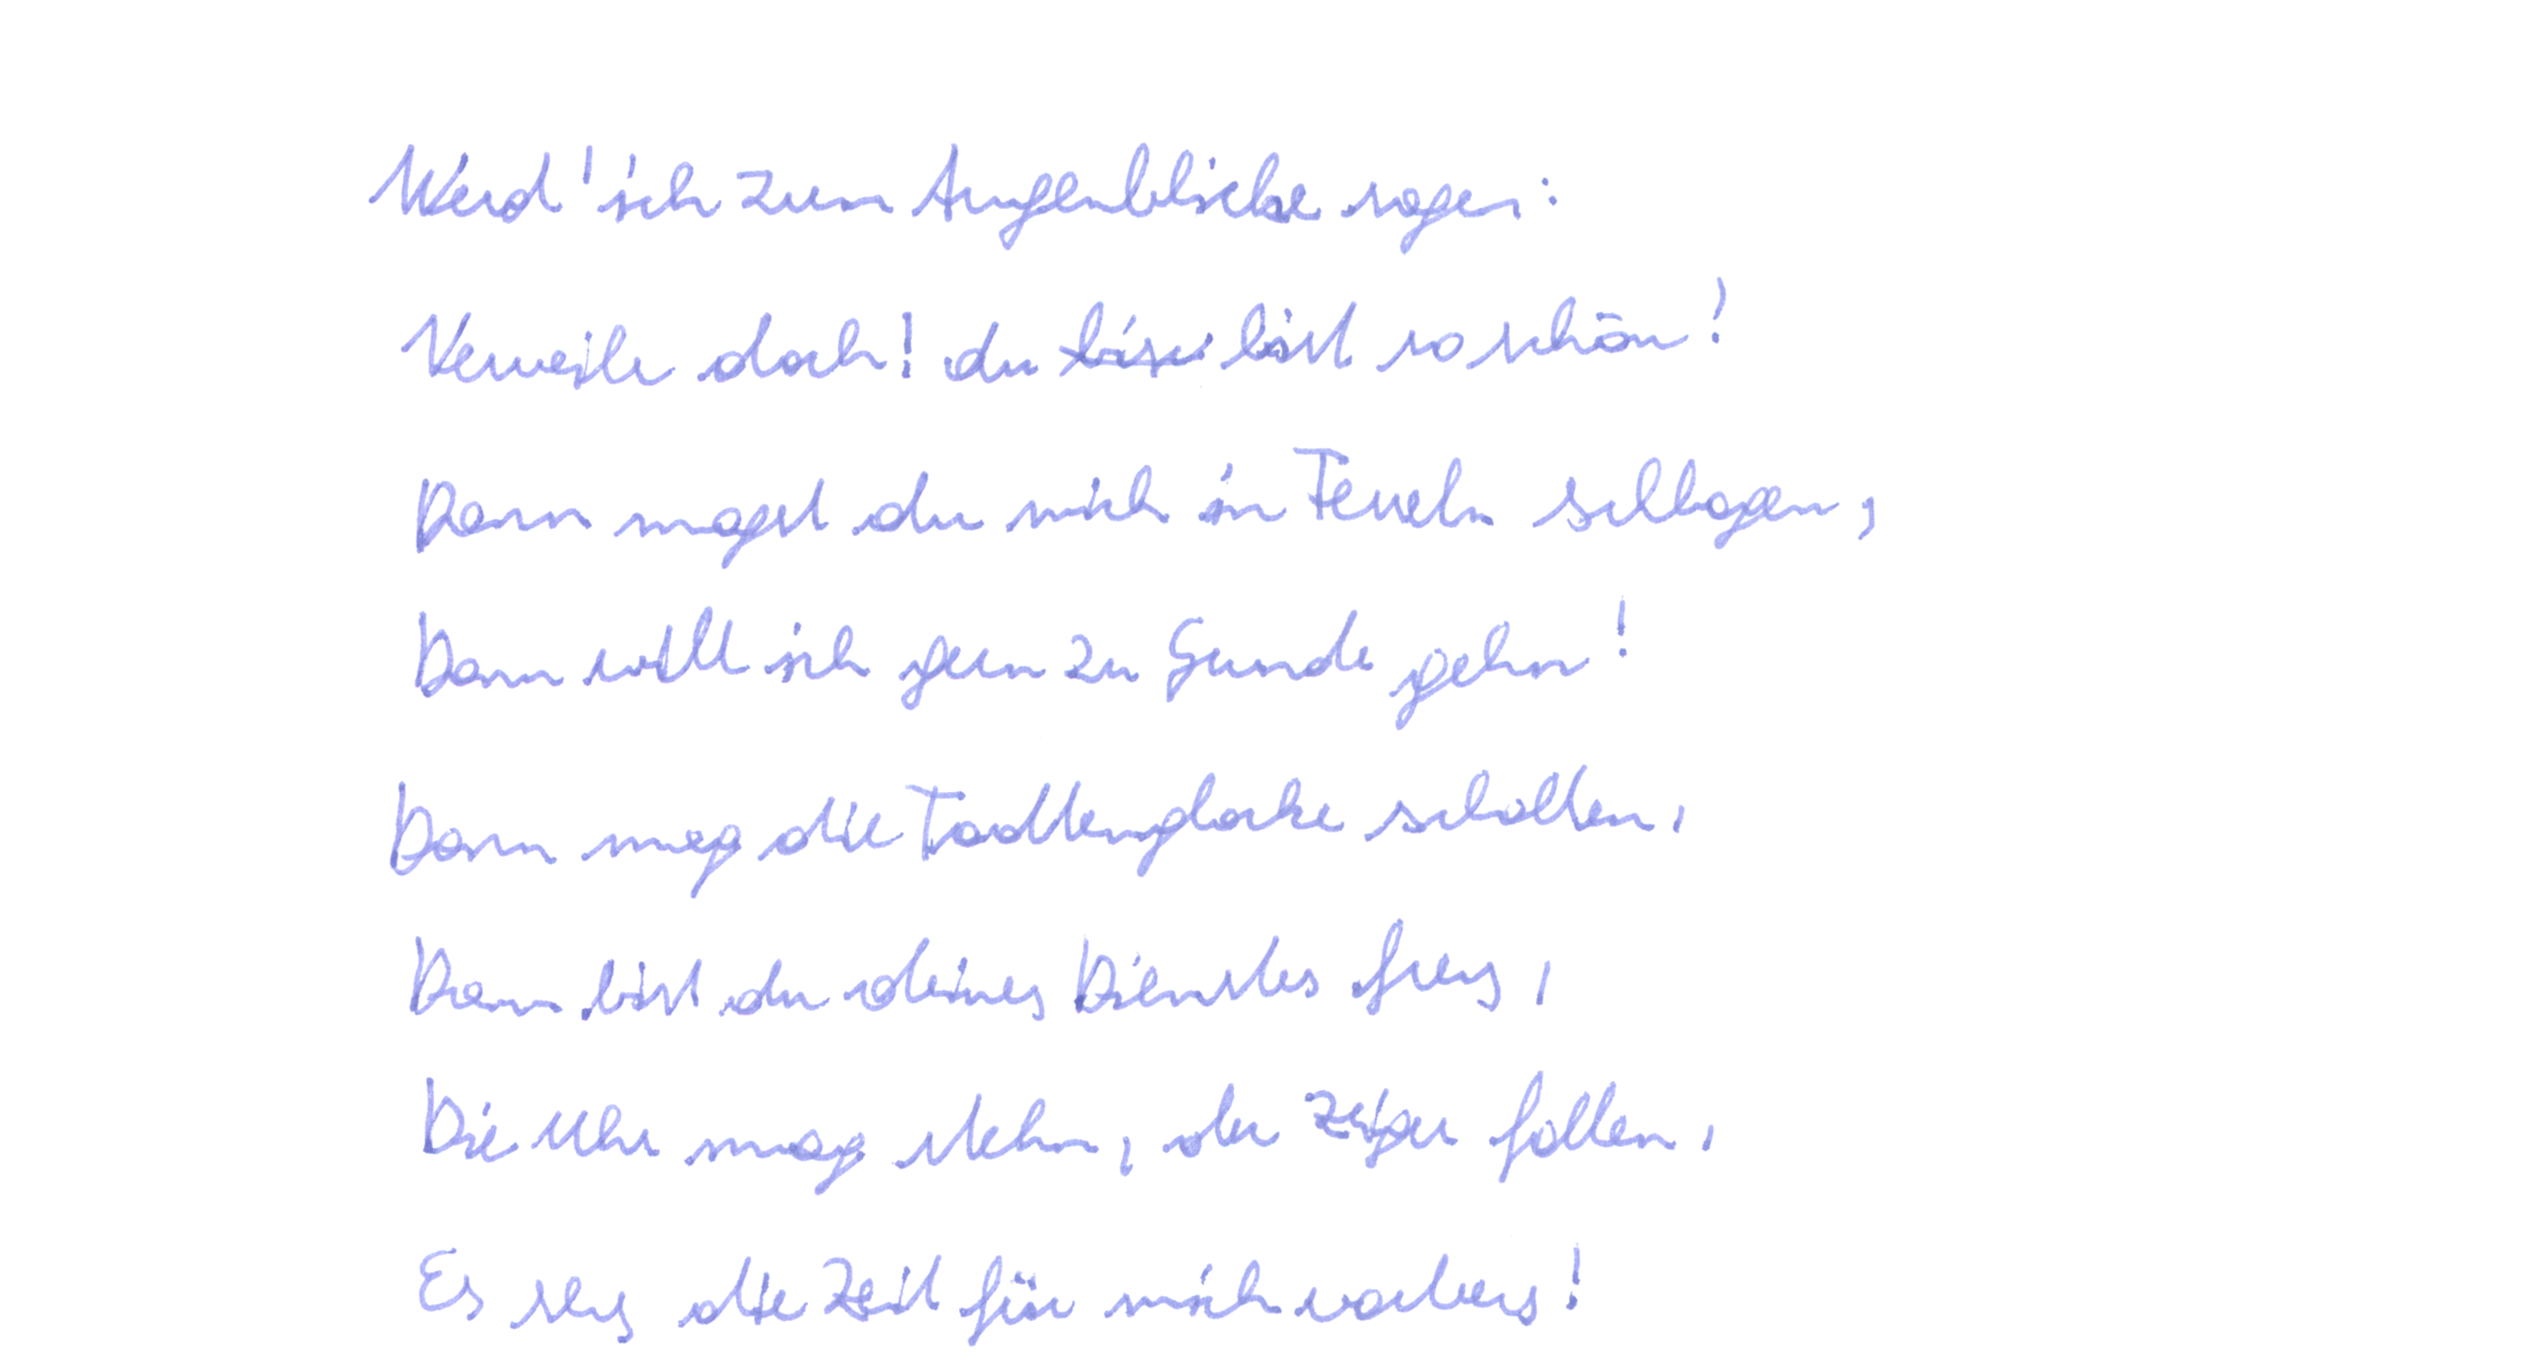 Werd' ich zum Augenblicke sagen:
Verweile doch! du bist so schön!
Dann magst du mich in schlagen,
Dann will ich gern zu Grunde gehn!
Dann mag die Todtenglocke schallen,
Dann bist du deines Dienstes frey,
Die Uhr mag stehn, der Zeiger fallen,
Es sey die Zeit für mich vorbey!